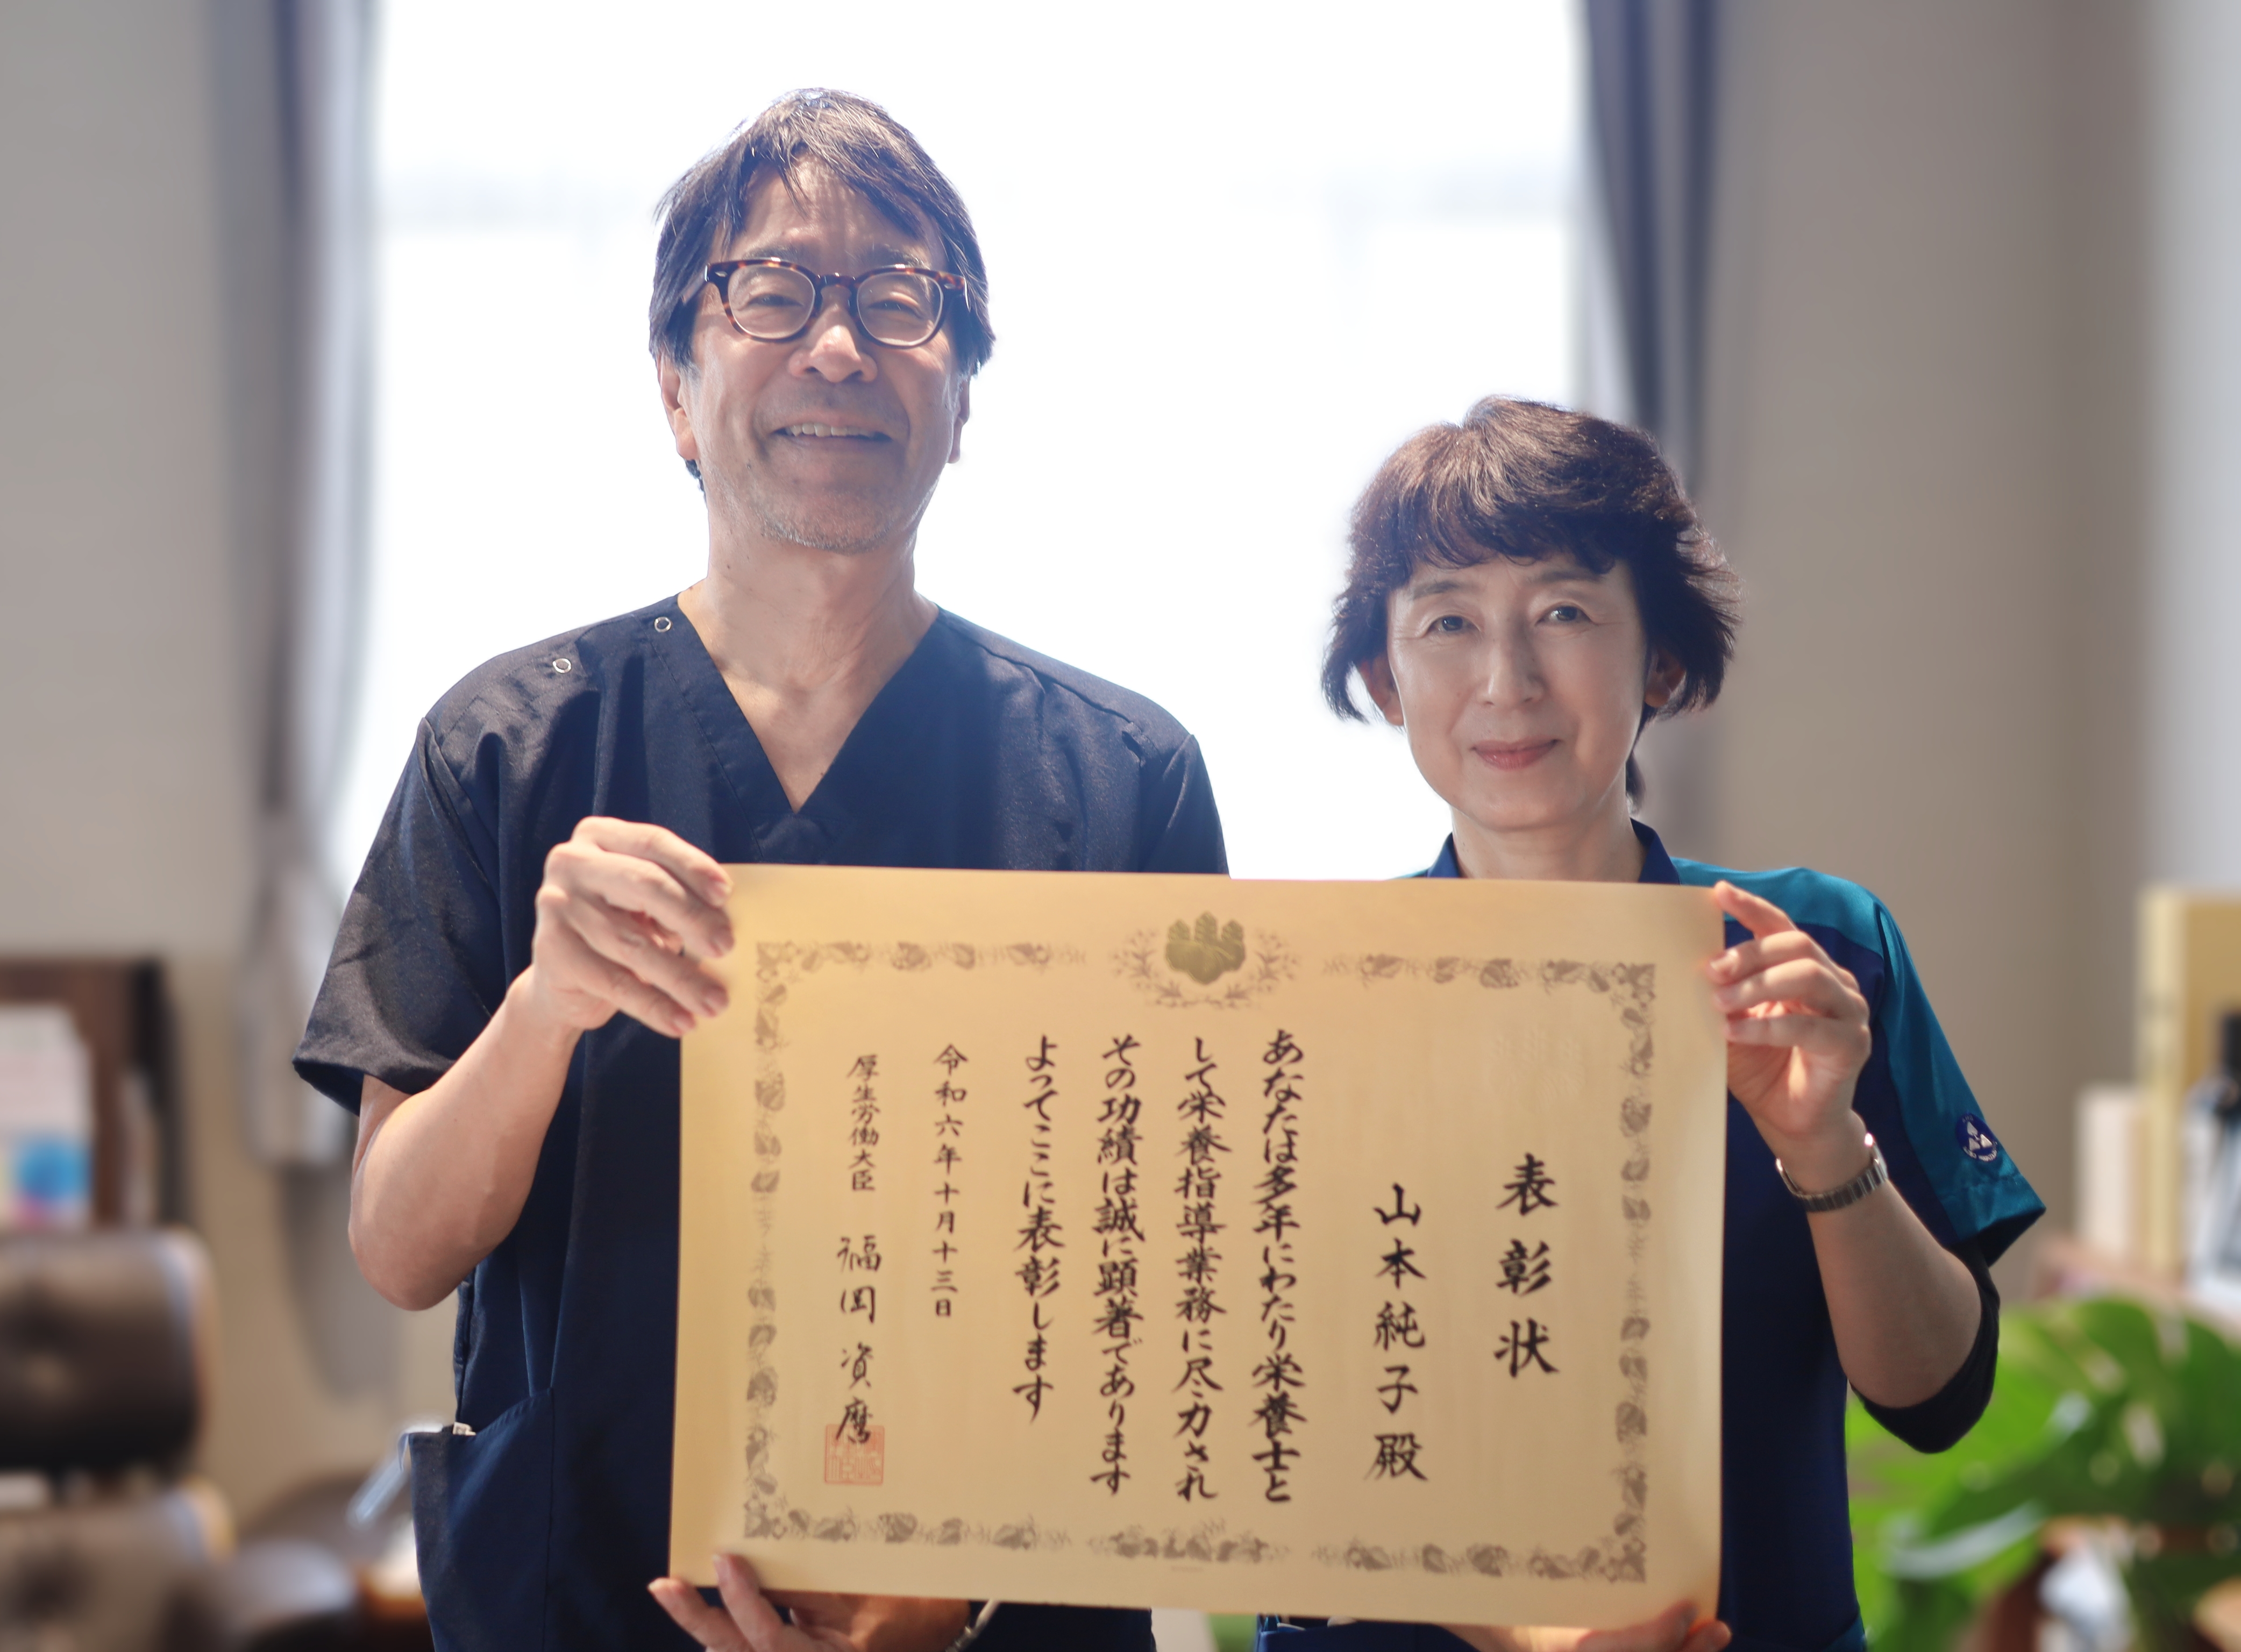 表彰状
山本純子殿
あなたは多年にわたり栄養士と
して栄養指導業務に尽力され
その功績は誠に顕著であります
よってここに表彰します
令和六年十月十三日
厚生労働大臣 福岡資麿